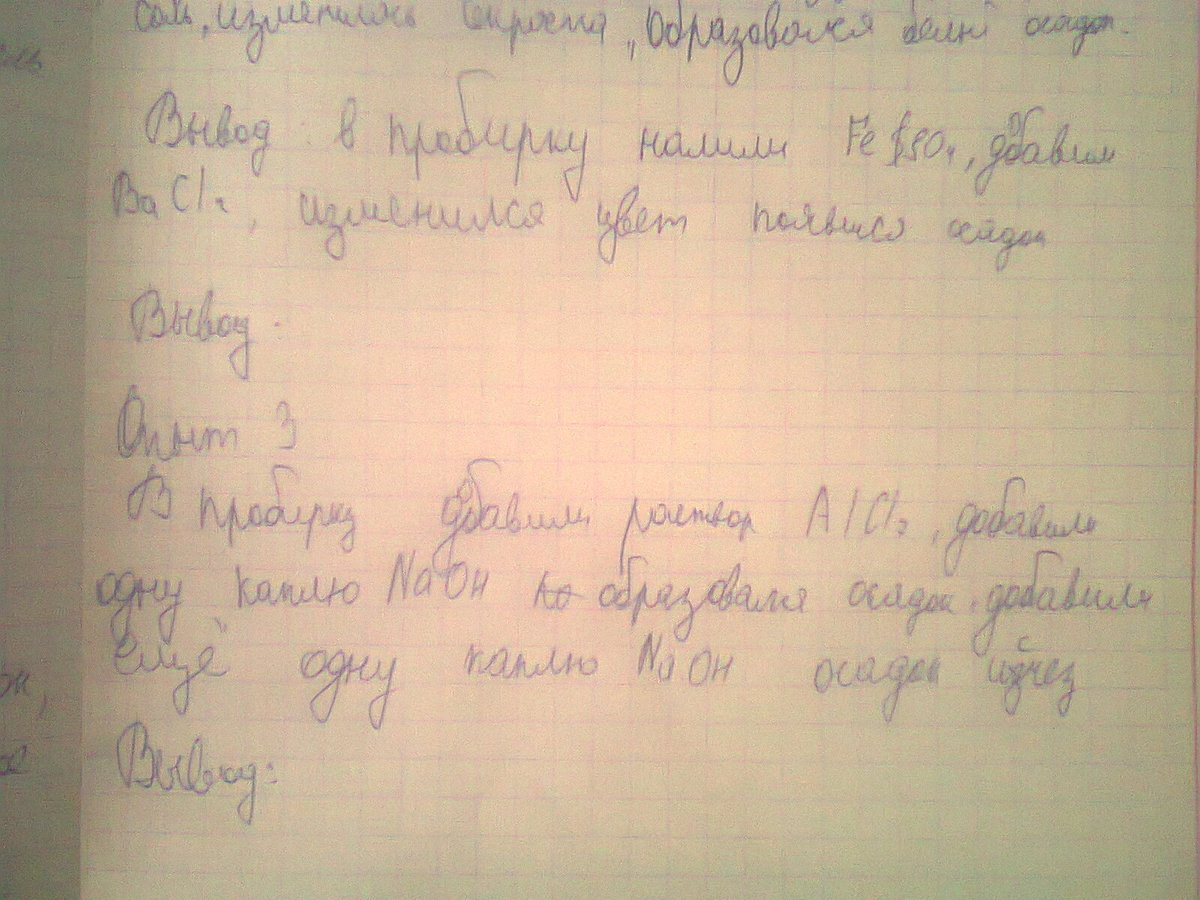 соль, изменилась окраска, образовался белый осадок.
Вывод: в пробирку налили FeSO₄, добавили
BaCl₂, изменился цвет появился осадок
Вывод:
Опыт 3
В пробирку добавили раствор AlCl₃, добавили
одну каплю NaOH образовался осадок, добавили
ещё одну каплю NaOH осадок исчез
Вывод: